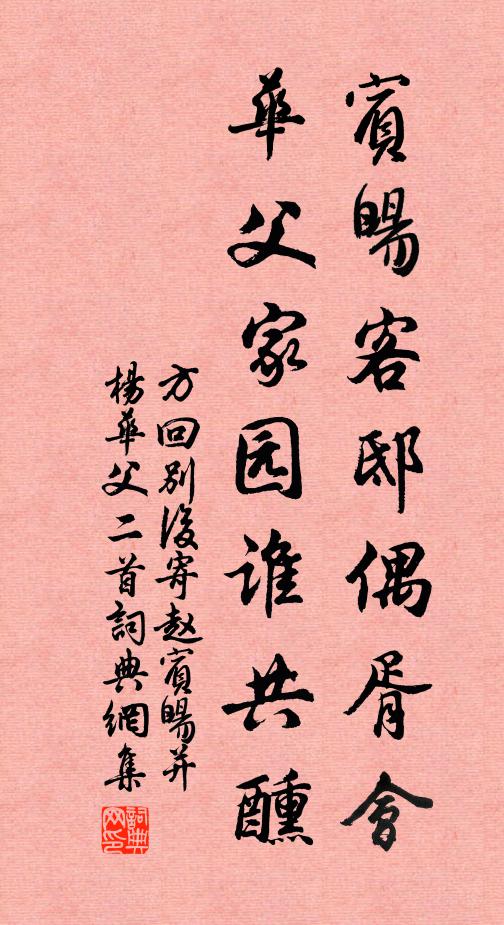 賓暘客邸偶胥會
華父家园谁共醺
方回别後寄赵賓暘并
楊華父二首詞典網集
詞典网印